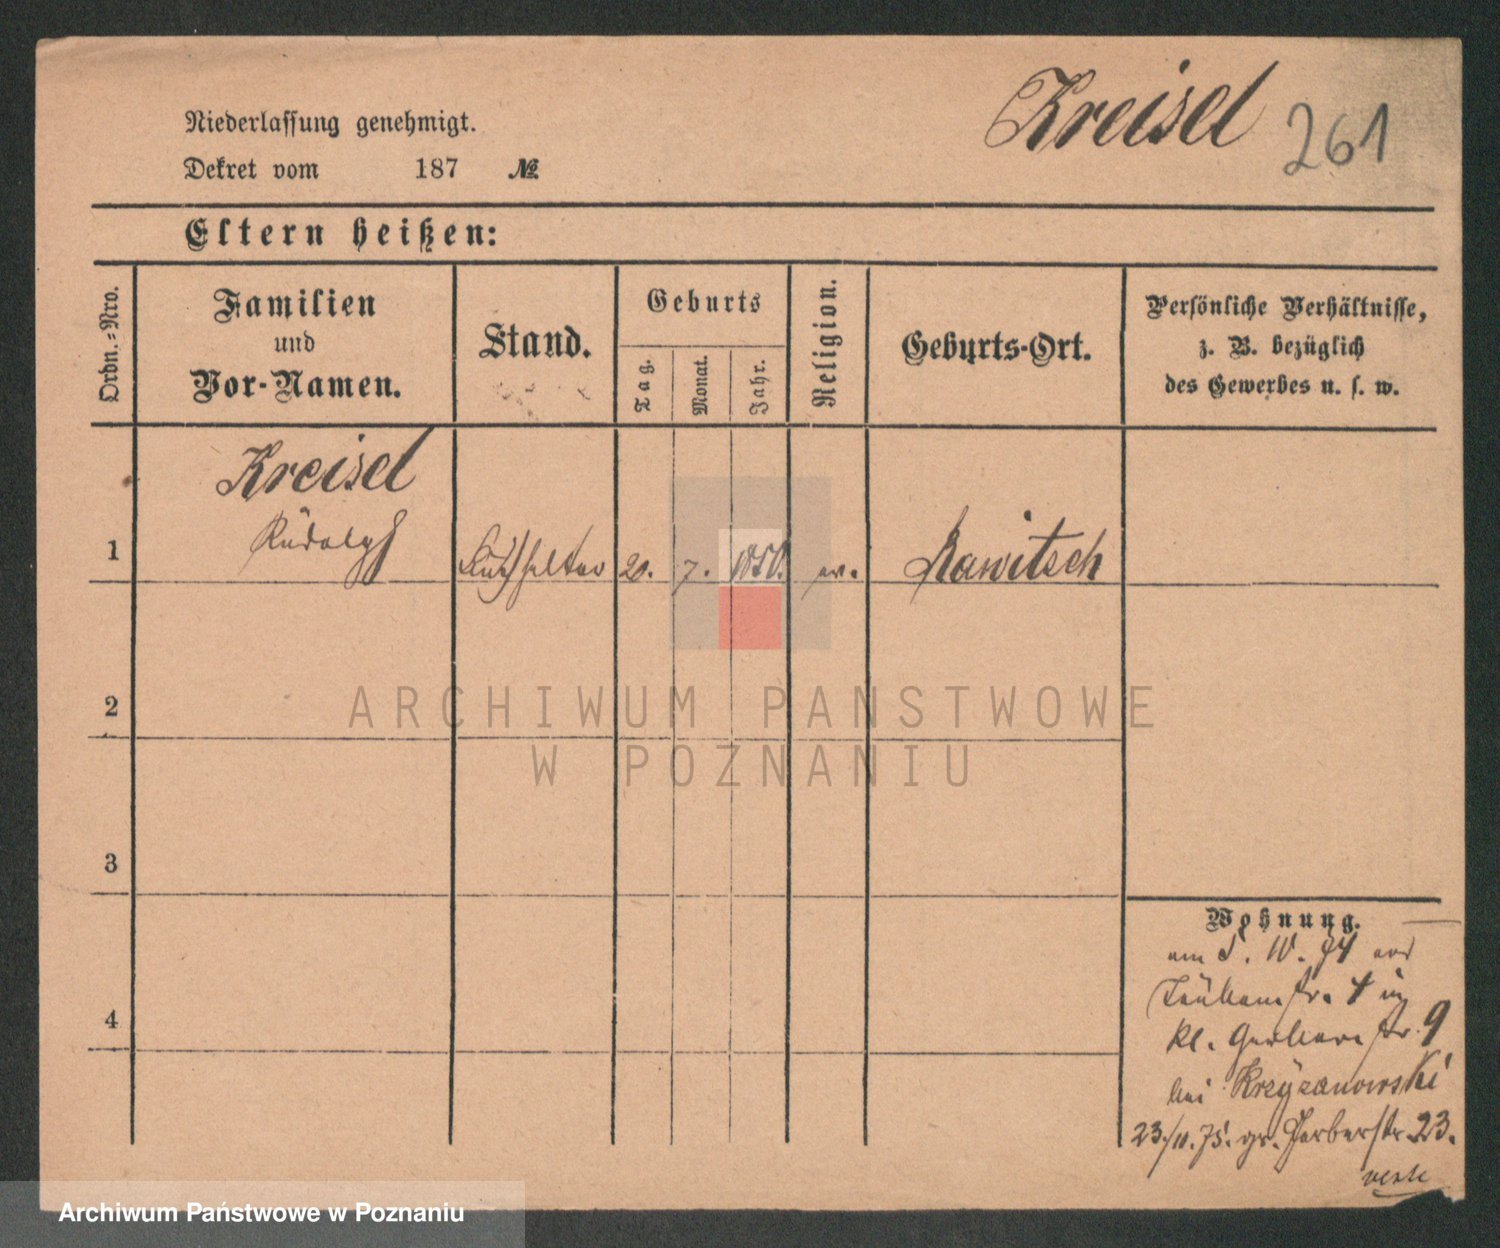 Kreisel 261
Niederlassung genehmigt.
Dekret vom 187 №
Eltern heißen:
Ordn.-Nro.
Familien
und
Vor-Namen.
Stand.
Geburts
Tag.
Monat.
Jahr.
Religion.
Geburts-Ort.
Persönliche Verhältnisse,
z. B. bezüglich
des Gewerbes u. s. w.
Kreisel
1 Rudolph 20. 7. 1850. ev. Rawitsch
2
ARCHIWUM PANSTWOWE
W POZNANIU
3
Wohnung.
am
4
kl. Gerberstr. 9
bei Krzyzanowski
23./11. 75. gr. Gerberstr. 23.
Archiwum Państwowe w Poznaniu